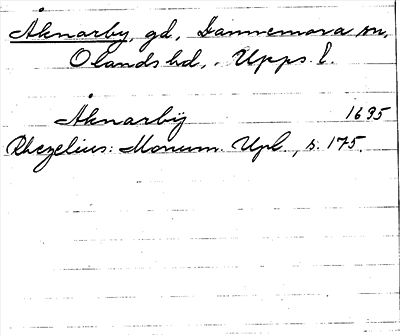 Åknarby, gd, Dannemora sn,
Olands hd, Upps. l.
Åknarbÿ 1635
Rhezelius: Monum. Upl., s. 175.